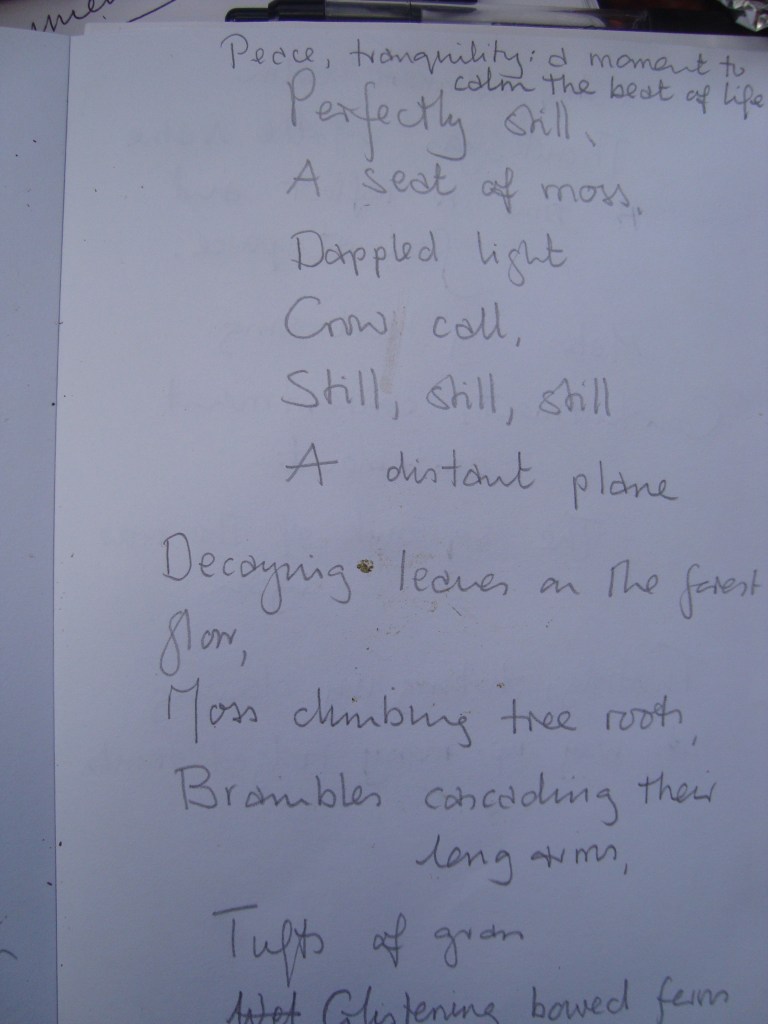 Peace, tranquility: a moment to
calm the beat of life
Perfectly still,
A seat of moss,
Dappled light
Crow call,
Still, still, still
A distant plane
Decaying leaves on the forest
floor,
Moss climbing tree roots,
Brambles cascading their
long arms,
Tufts of grass
Wet Glistening bowed ferns